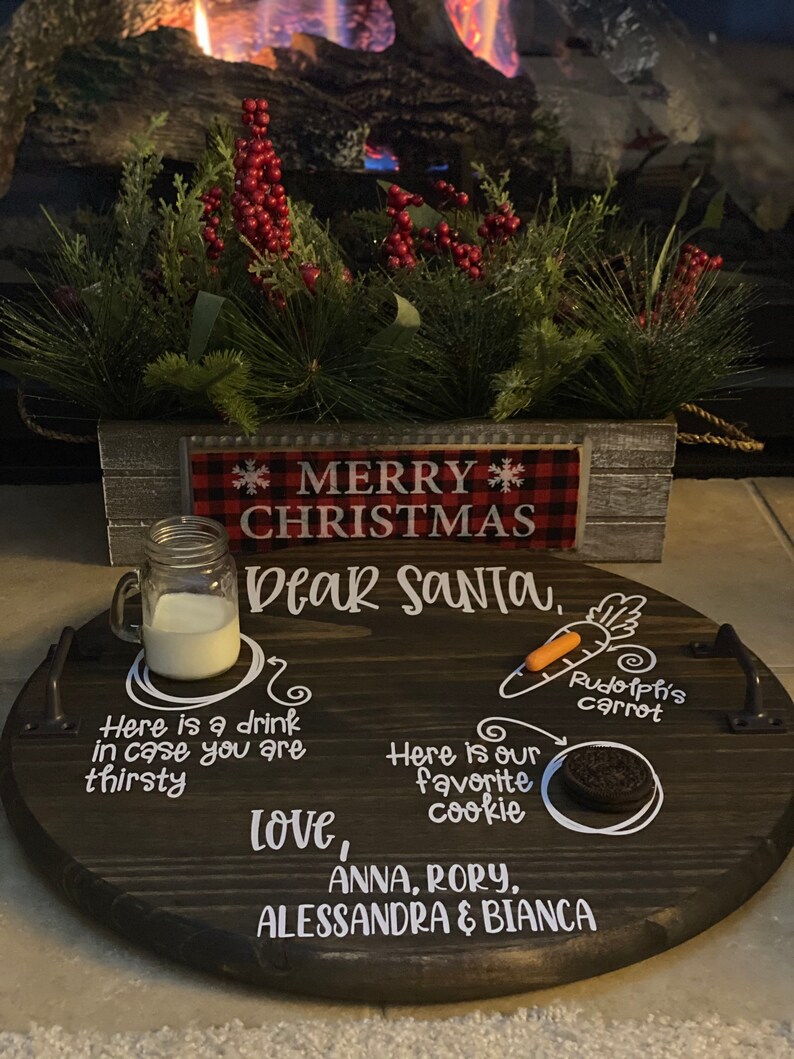 MERRY
CHRISTMAS
Dear Santa,
Here is a drink
in case you are
thirsty
Rudolph's
carrot
Here is our
favorite
cookie
Love,
ANNA, RORY,
ALESSANDRA & BIANCA